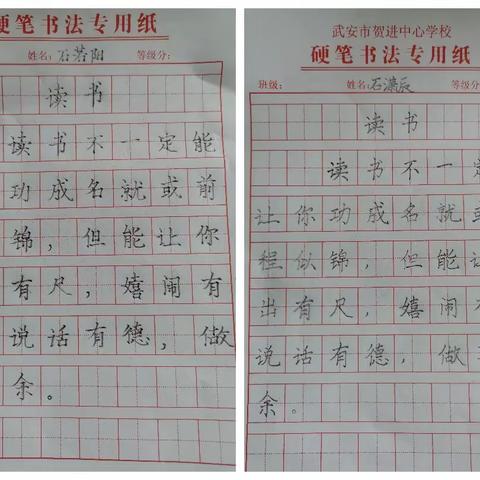 硬笔书法专用纸
姓名：石若阳 等级分：
读书
读书不一定能
功成名就或前
锦，但能让你
有尺，嬉闹有
说话有德，做
余。
武安市贺进中心学校
硬笔书法专用纸
班级： 姓名：石潇辰 等级分
读书
读书不一定
让你功成名就或
程似锦，但能让
出有尺，嬉闹有
说话有德，做
余。